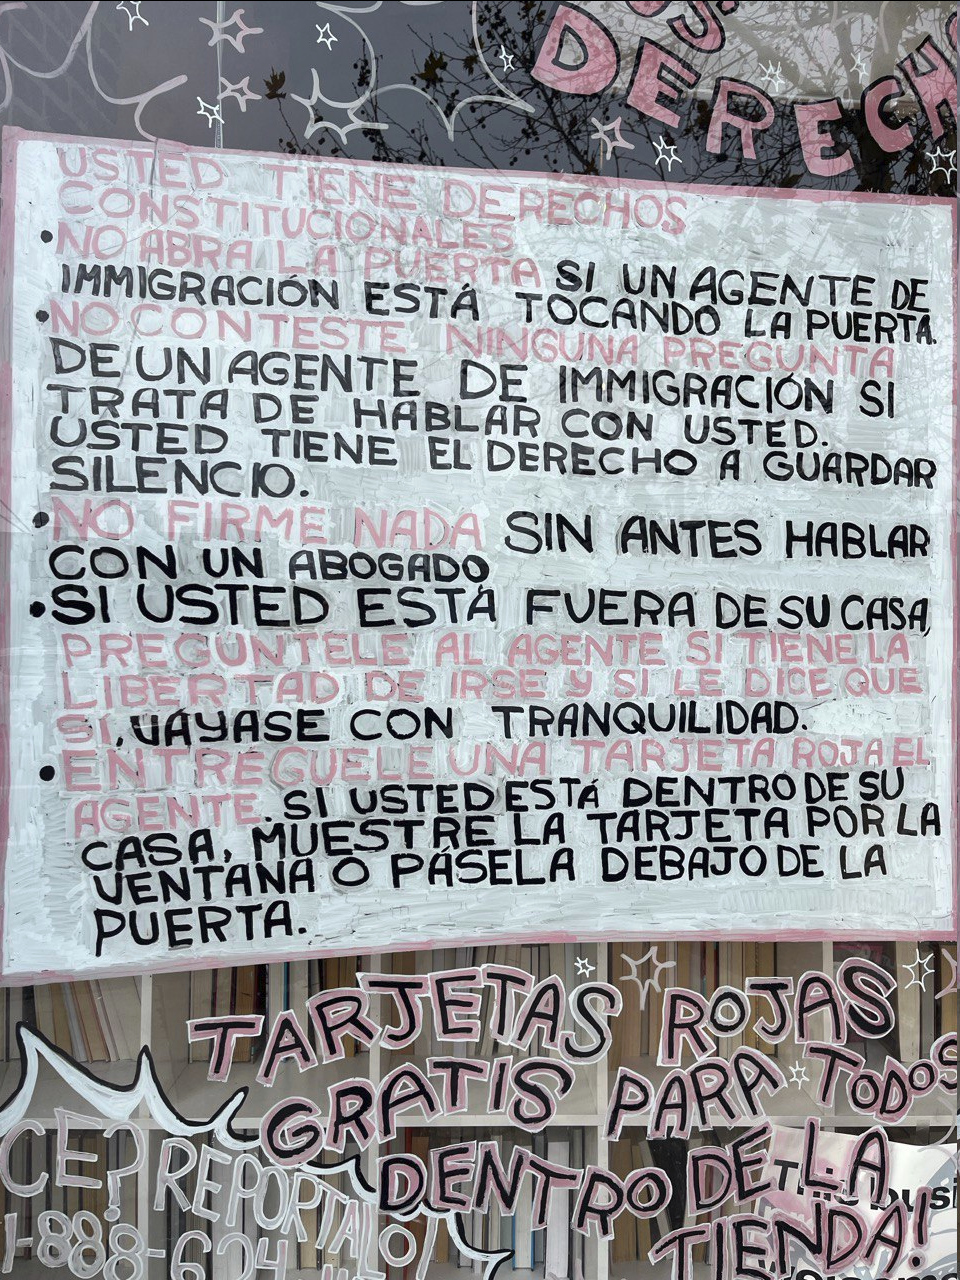 DERECHO
USTED TIENE DERECHOS
CONSTITUCIONALES
• NO ABRA LA PUERTA SI UN AGENTE DE
IMMIGRACIÓN ESTÁ TOCANDO LA PUERTA.
• NO CONTESTE NINGUNA PREGUNTA
DE UN AGENTE DE IMMIGRACIÓN SI
TRATA DE HABLAR CON USTED.
USTED TIENE EL DERECHO A GUARDAR
SILENCIO.
• NO FIRME NADA SIN ANTES HABLAR
CON UN ABOGADO
• SI USTED ESTÁ FUERA DE SU CASA,
PREGUNTELE AL AGENTE SI TIENE LA
LIBERTAD DE IRSE Y SI LE DICE QUE
SI, VÁYASE CON TRANQUILIDAD.
• ENTREGUELE UNA TARJETA ROJA EL
AGENTE. SI USTED ESTÁ DENTRO DE SU
CASA, MUESTRE LA TARJETA POR LA
VENTANA O PÁSELA DEBAJO DE LA
PUERTA.
TARJETAS ROJAS
GRATIS PARA TODOS
DENTRO DE LA
TIENDA!
CE? REPORTALO!
1-888-624